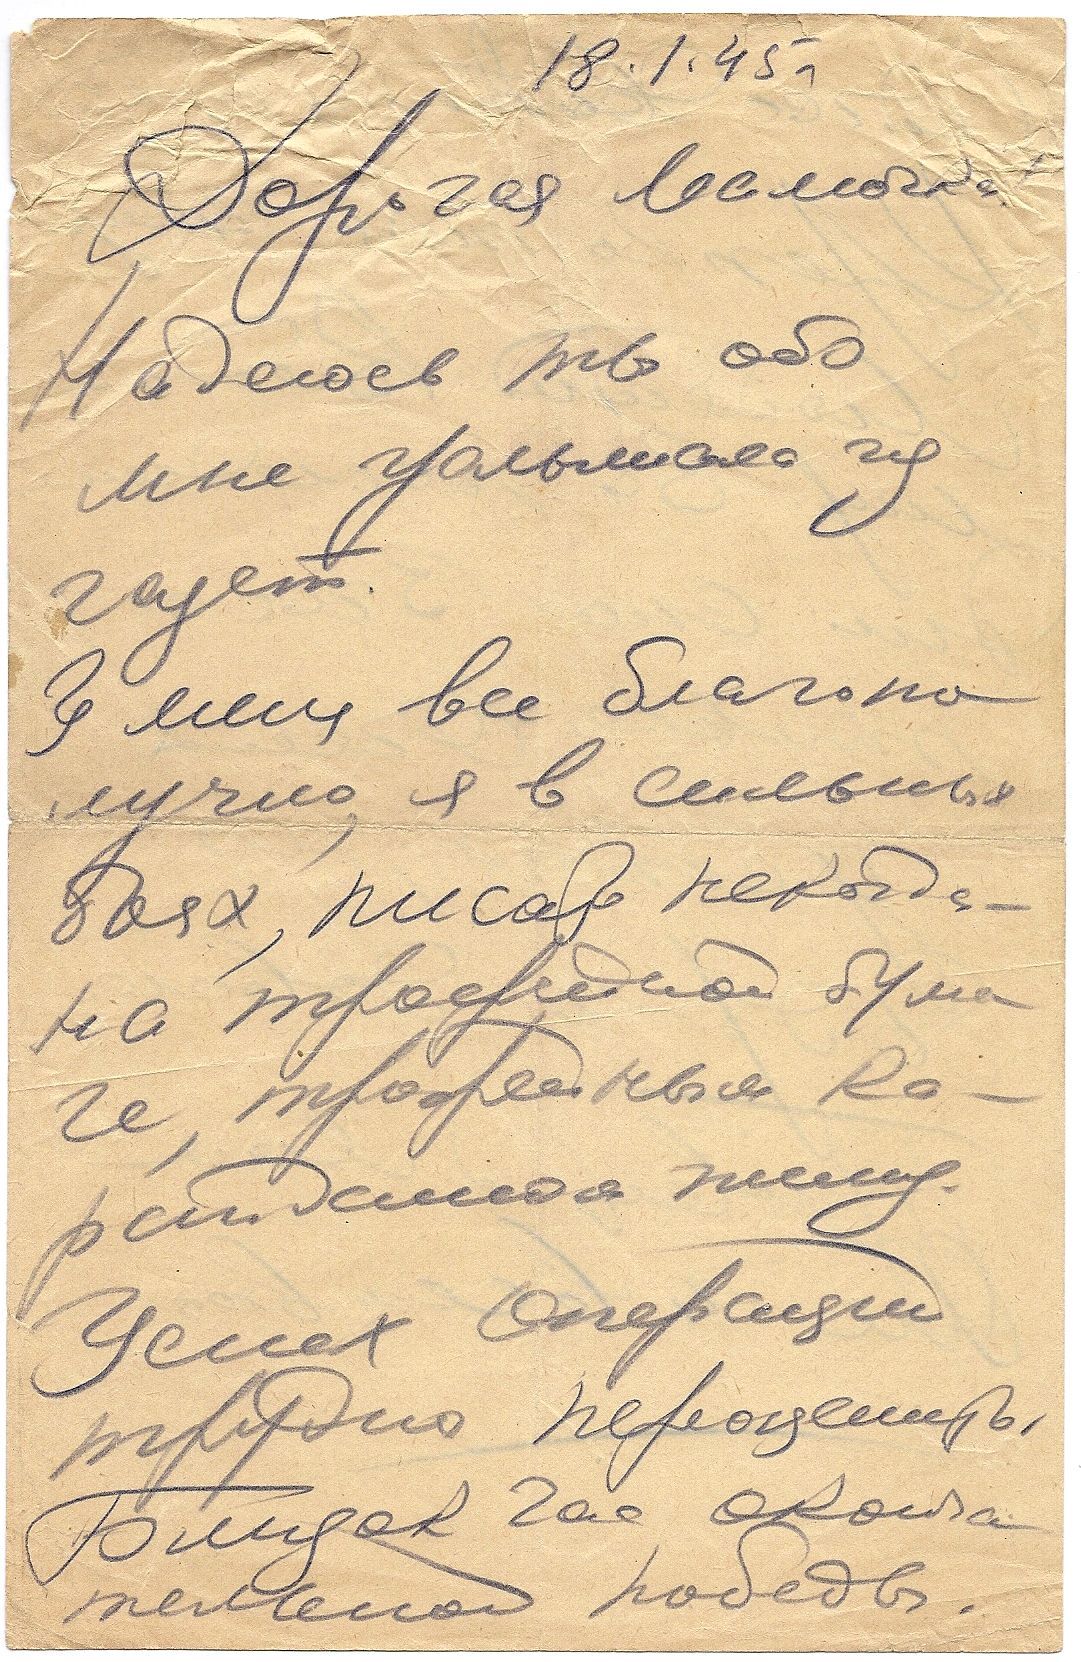 18.1.45 г
Дорогая Мамочка!
Надеюсь ты обо
мне услышала из
газет.
У меня все благопо
лучно, я в сильных
боях, писать некогда –
на трофейной бума
ге, трофейным ка –
рандашом пишу.
Успех операций
трудно переоценить,
Близок час оконча
тельной победы.